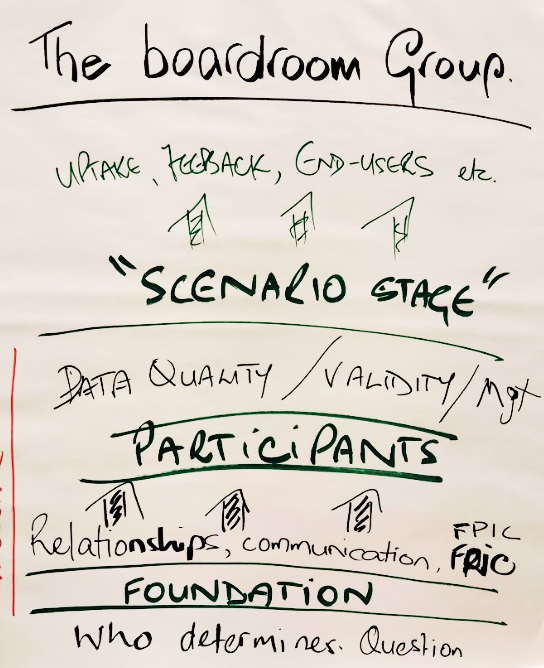 The boardroom Group.
UPTAKE, FEEBACK, END-USERS etc.
"SCENARIO STAGE"
DATA QUALITY / VALIDITY / Mgt
PARTICIPANTS
FPIC
Relationships, communication, FPIC
FOUNDATION
Who determines. Question